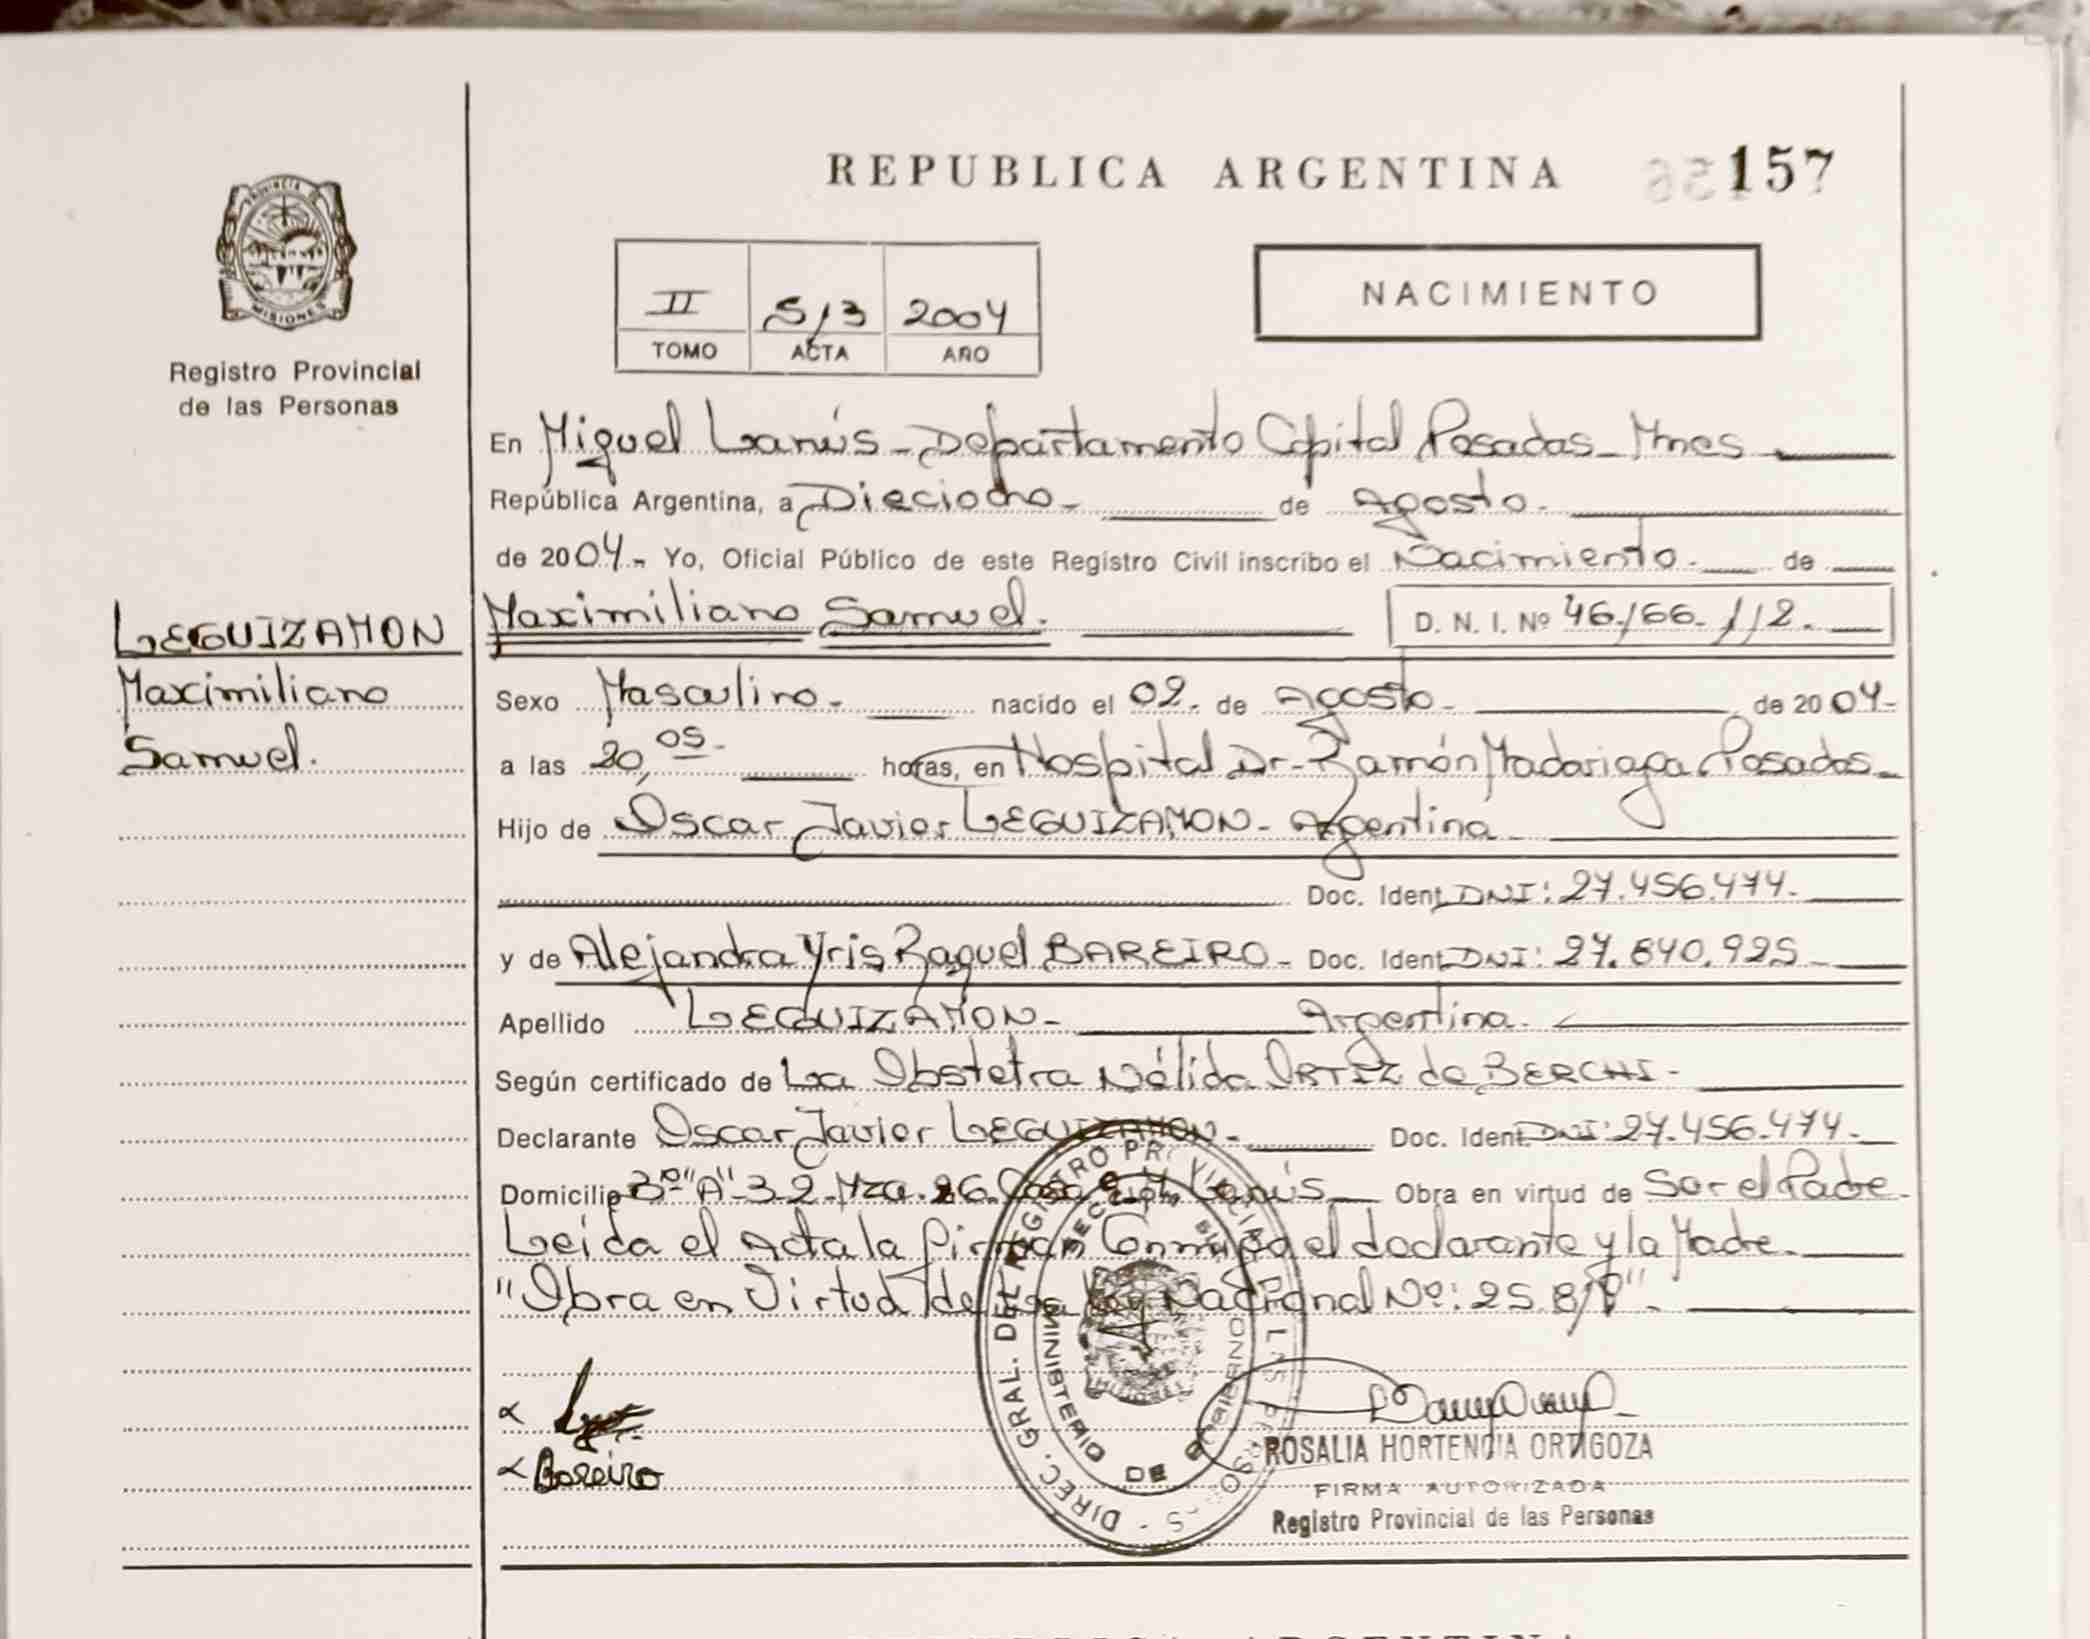 REPUBLICA ARGENTINA 157
PROVINCIA DE MISIONES
Registro Provincial
de las Personas
NACIMIENTO
II 513 2004
TOMO ACTA AÑO
En Miguel Lanús - Departamento Capital Posadas - Mnes
República Argentina, a Dieciocho - de Agosto -
de 2004 - Yo, Oficial Público de este Registro Civil inscribo el Nacimiento - de
LEGUIZAMON
Maximiliano
Samuel.
Maximiliano Samuel. D. N. I. Nº 46.166.112.
Sexo Masculino - nacido el 02. de Agosto - de 2004 -
a las 20,05 - horas, en Hospital Dr. Ramón Madariaga Posadas -
Hijo de Óscar Javier LEGUIZAMON - Argentina
Doc. Ident DNI: 27.456.474.
y de Alejandra Yris Raquel BAREIRO - Doc. Ident DNI: 27.840.925 -
Apellido LEGUIZAMON - Argentina.
Según certificado de La Obstetra Nélida ORTIZ de BERCHI -
Declarante Oscar Javier LEGUIZAMON - Doc. Ident DNI: 27.456.474 -
Domicilio Bº "A" 32 Mza. 26 Casa Lanús Obra en virtud de Ser el Padre -
Leída el Acta la Firman Conmigo el declarante y la Madre.
"Obra en Virtud de la Ley Nacional Nº: 25.819" -
Bareiro
DIREC. GRAL. DEL REGISTRO PROVINCIAL DE LAS PERSONAS
MINISTERIO DE GOBIERNO
ROSALIA HORTENCIA ORTIGOZA
FIRMA AUTORIZADA
Registro Provincial de las Personas